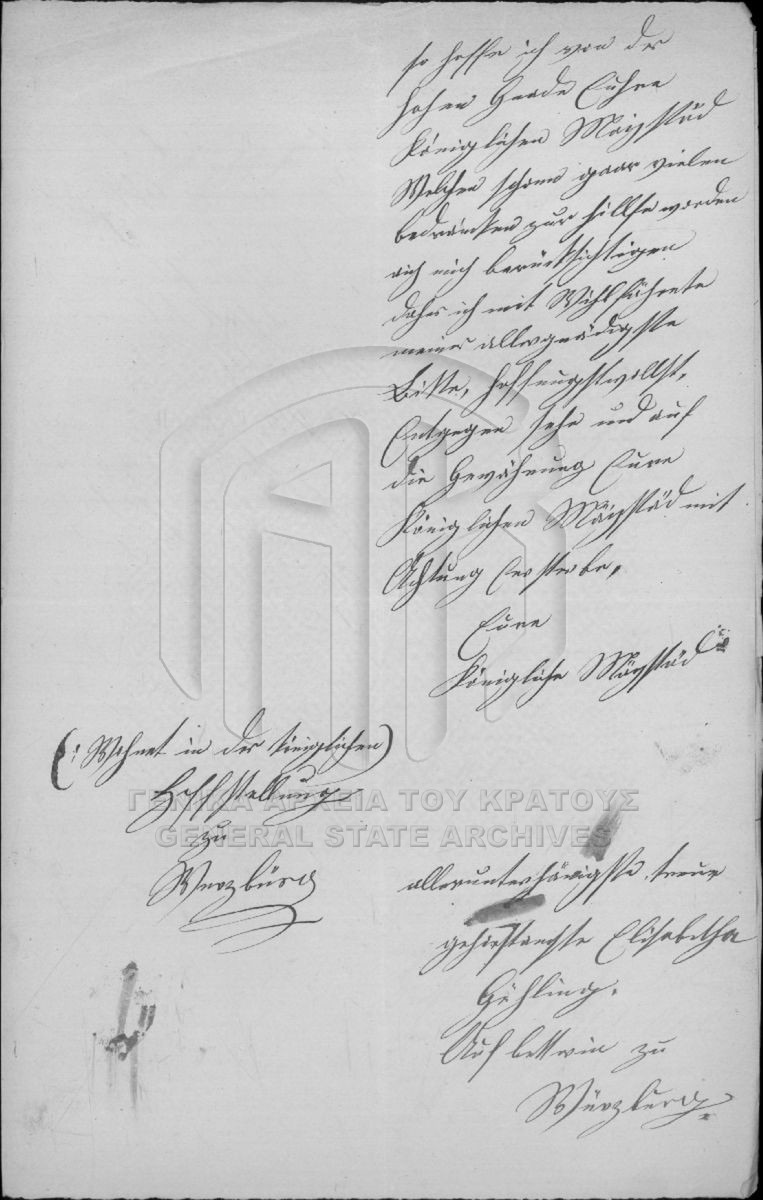 so hoffe ich von der
hohen Gnade Euhre
Königlichen Maigstäd
Welchen schon gaar vielen
bedränkten zur hillfe worden
auch mich berücksichtigen
dahs ich mit
meiner allergnädigste
Bitte, hoffnungstvollst,
Entgegen sehe und auf
die Gewährung Eure
Königlichen Maigstäd mit
Achtung Ersterbe,
Eure
Königliche Mägstäd
(: Wohnet in der königlichen)
Hoffstallung
zu
Werzbürg
allerunterthänigste treu
gehorsamste Elisabetha
Gehling.
zu
Würzburg
ΓΕΝΙΚΑ ΑΡΧΕΙΑ ΤΟΥ ΚΡΑΤΟΥΣ
GENERAL STATE ARCHIVES